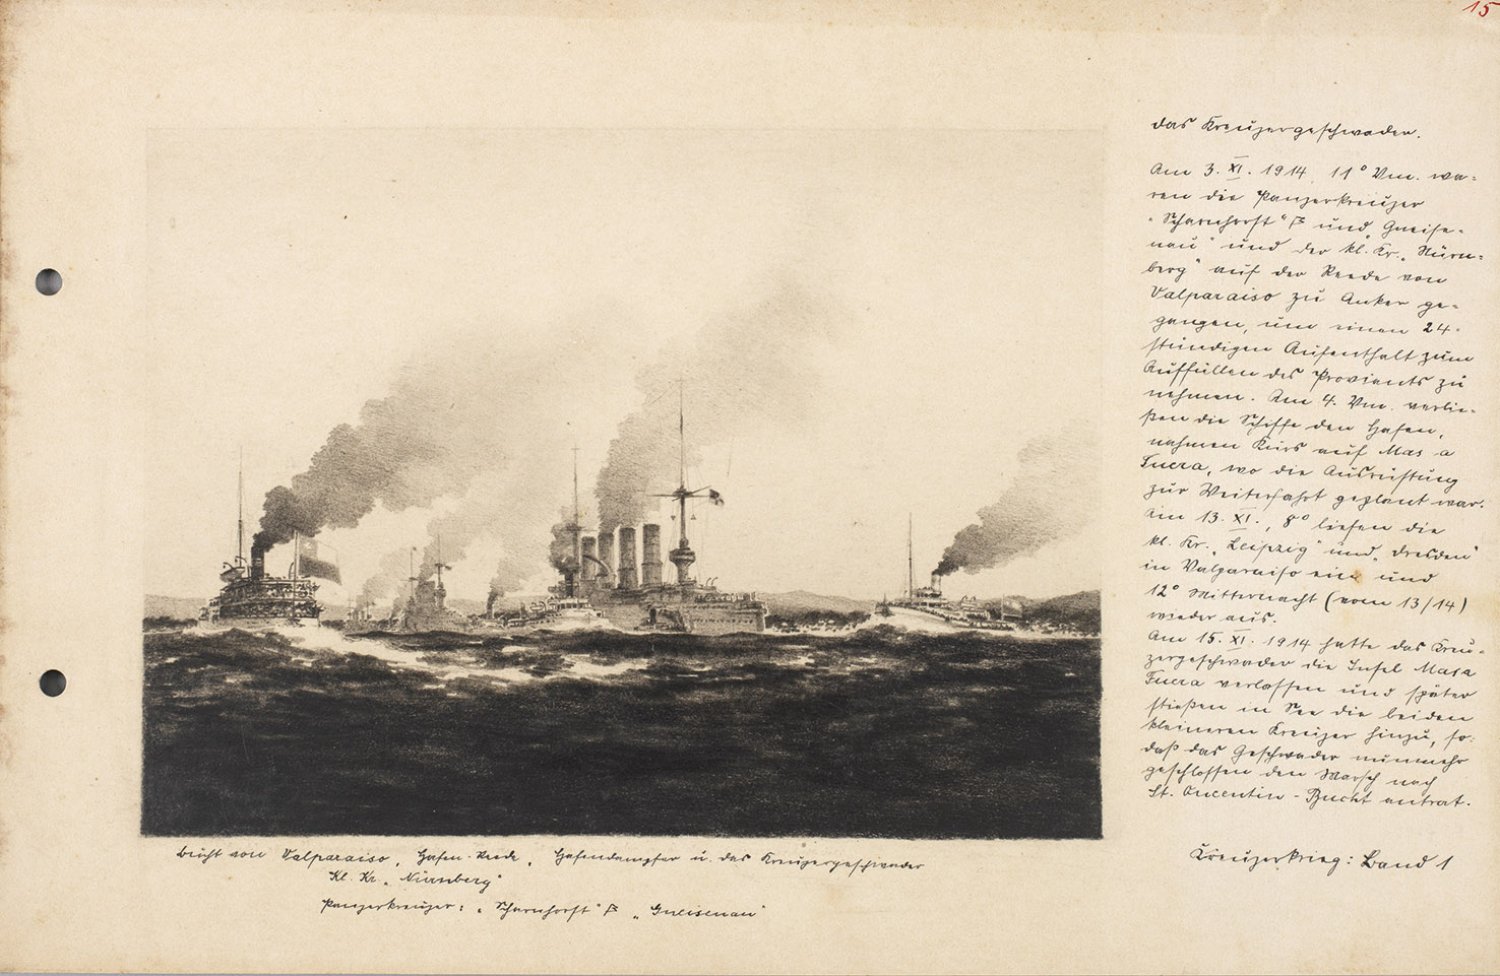 15
Das Kreuzergeschwader.
Am 3. XI. 1914, 11° Vm. wa-
ren die Panzerkreuzer
"Scharnhorst" und Gneise-
nau" und der kl. Kr. "Nürn-
berg" auf der Reede von
Valparaiso zu Anker ge-
gangen, um einen 24-
stündigen Aufenthalt zum
Auffüllen des Proviants zu
nehmen. Am 4. Vm. verlie-
ßen die Schiffe den Hafen,
nahmen Kurs auf Mas a
Fuera, wo die Ausrüstung
zur Weiterfahrt geplant war.
Am 13. XI., 8° liefen die
kl. Kr. "Leipzig" und "Dresden"
in Valparaiso ein und
12° Mitternacht (vom 13/14)
wieder aus.
Am 15. XI. 1914 hatte das Kreu-
zergeschwader die Insel Masa
Fuera verlassen und später
stießen in See die beiden
kleineren Kreuzer hinzu, so-
daß das Geschwader nunmehr
geschlossen den Marsch nach
St. Quentin-Bucht antrat.
Kreuzerkrieg: Band 1
Bucht von Valparaiso, Hafen-Reede, Hafendampfer u. das Kreuzergeschwader
Kl. Kr. "Nürnberg"
Panzerkreuzer: "Scharnhorst" "Gneisenau"